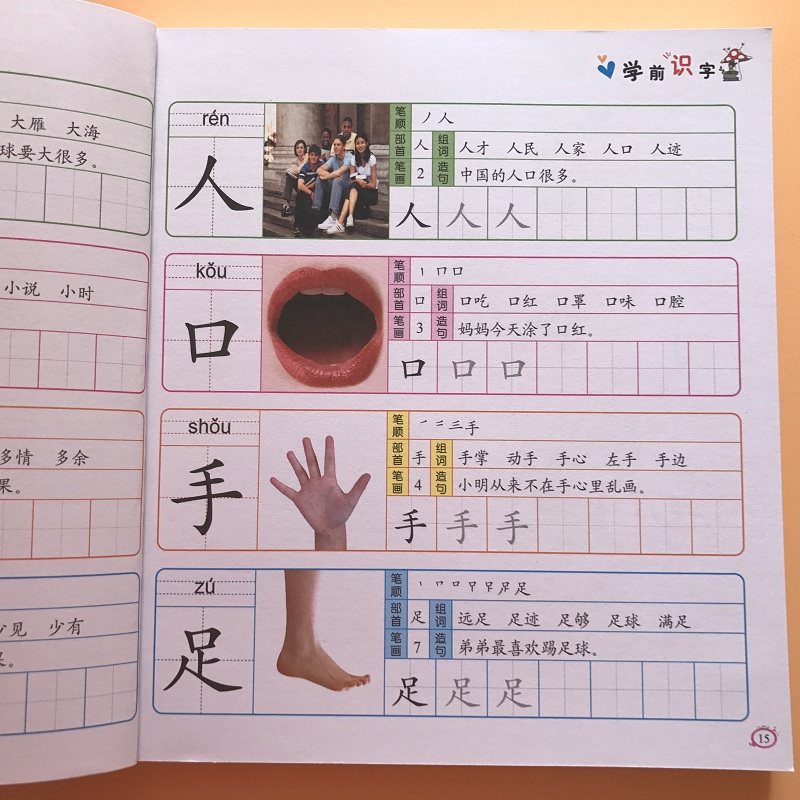 大雁 大海
球要大很多。
小说 小时
多情 多余
果。
少见 少有
学前识字
rén
人
笔顺 丿人
部首 人 组词 人才 人民 人家 人口 人迹
笔画 2 造句 中国的人口很多。
人 人 人
kǒu
口
笔顺 丨 冂 口
部首 口 组词 口吃 口红 口罩 口味 口腔
笔画 3 造句 妈妈今天涂了口红。
口 口 口
shǒu
手
笔顺 ㇀ 二 三 手
部首 手 组词 手掌 动手 手心 左手 手边
笔画 4 造句 小明从来不在手心里乱画。
手 手 手
zú
足
笔顺
部首 足 组词 远足 足迹 足够 足球 满足
笔画 7 造句 弟弟最喜欢踢足球。
足 足 足
15